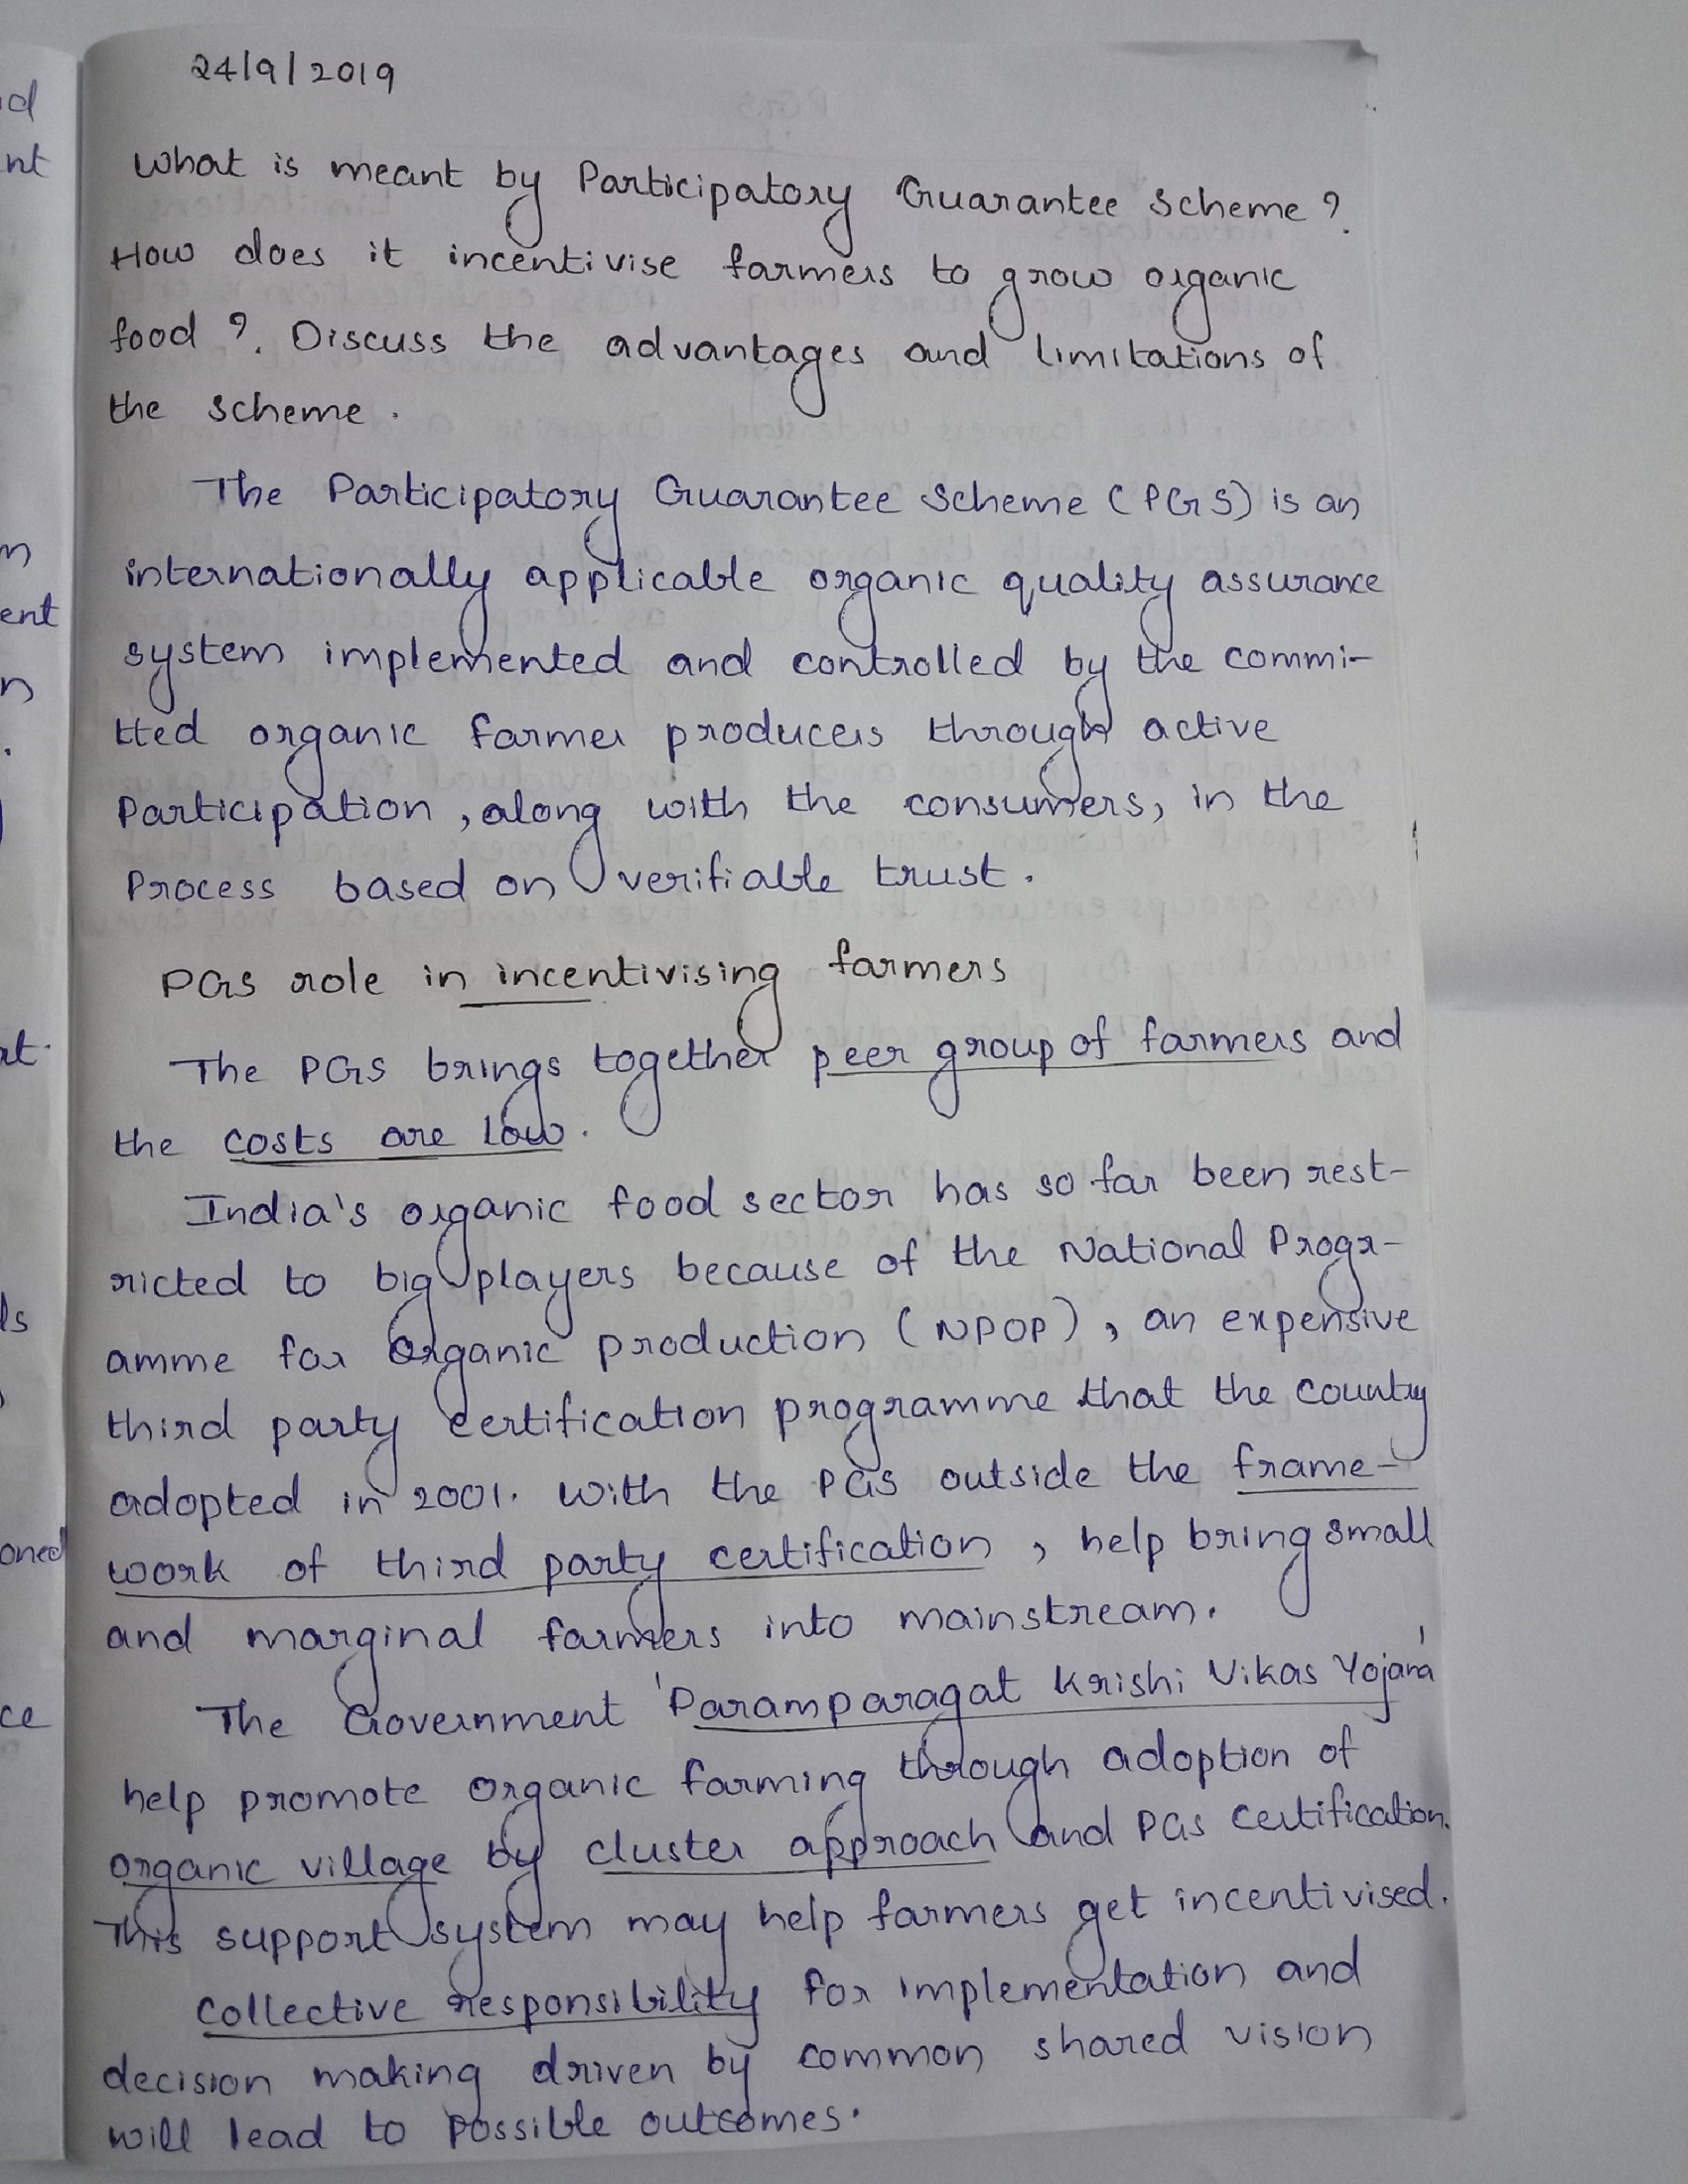 24/9/2019
What is meant by Participatory Guarantee Scheme?
How does it incentivise farmers to grow organic
food ?. Discuss the advantages and limitations of
the scheme.
The Participatory Guarantee Scheme (PGS) is an
internationally applicable organic quality assurance
system implemented and controlled by the commi-
tted organic farmer producers through active
Participation, along with the consumers, in the
Process based on verifiable trust.
PGS role in incentivising farmers
The PGS brings together peer group of farmers and
the costs are low.
India's organic food sector has so far been rest-
ricted to big players because of the National Progr-
amme for Organic production (NPOP), an expensive
third party certification programme that the country
adopted in 2001. With the PGS outside the frame-
work of third party certification, help bring small
and marginal farmers into mainstream.
The Government 'Paramparagat Krishi Vikas Yojana'
help promote organic farming through adoption of
organic village by cluster approach and PGS Certification.
This support system may help farmers get incentivised.
Collective responsibility for implementation and
decision making driven by common shared vision
will lead to possible outcomes.